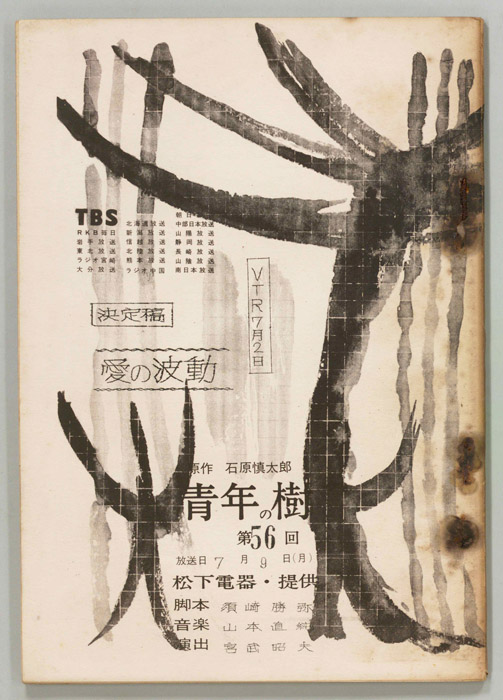 TBS
朝日放送
北海道放送 中部日本放送
RKB毎日 新潟放送 山陽放送
岩手放送 信越放送 静岡放送
東北放送 北陸放送 長崎放送
ラジオ宮崎 熊本放送 山陰放送
大分放送 ラジオ中国 南日本放送
VTR7月2日
決定稿
愛の波動
原作 石原慎太郎
青年の樹
第56回
放送日 7月9日(月)
松下電器・提供
脚本 須崎勝弥
音楽 山本直純
演出 宮武昭夫